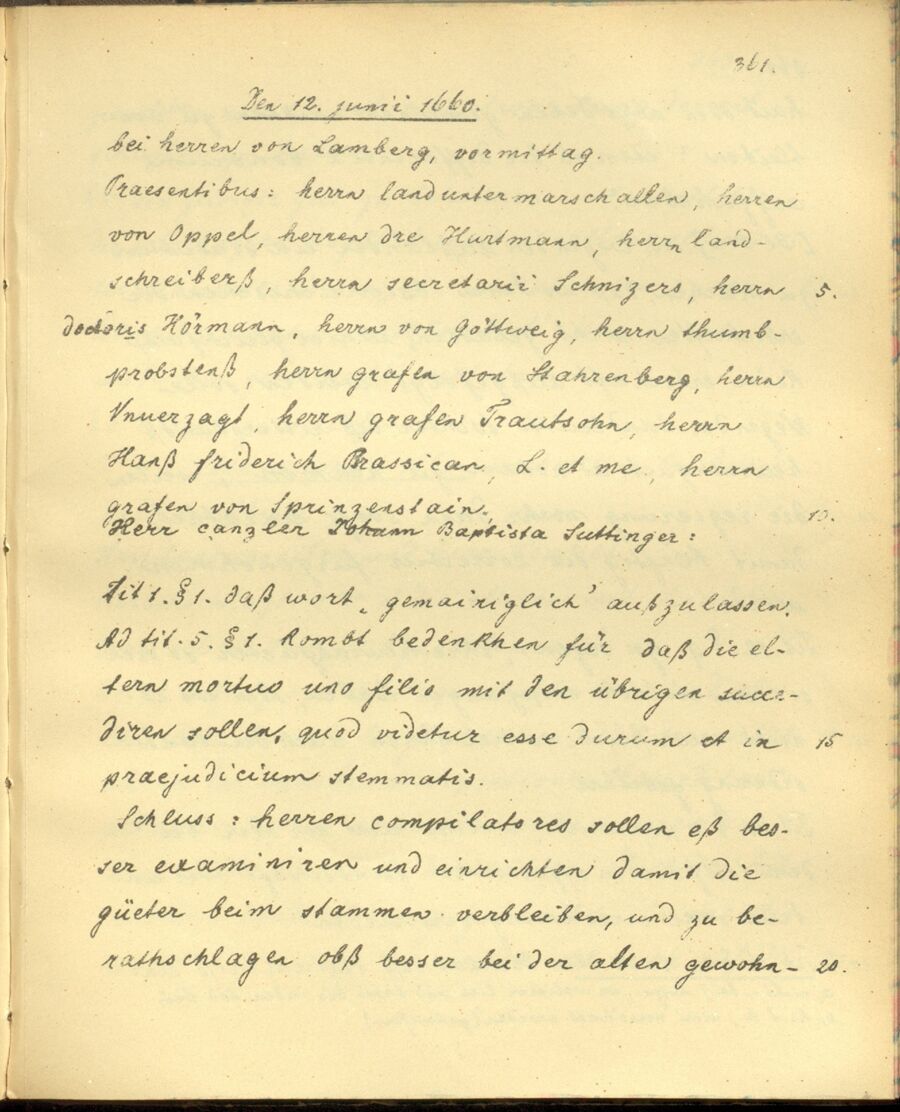 361.
Den 12. junii 1660.
bei herren von Lamberg, vormittag.
Praesentibus: herrn landuntermarschallen, herren
von Oppel, herren dre Hurtmann, herrn land-
schreiberß, herrn secretarii Schnizers, herrn 5.
doctoris Hörmann, herrn von Göttweig, herrn thumb-
probstenß, herrn grafen von Stahrenberg, herrn
Vnuerzagt, herrn grafen Trautsohn, herrn
Hanß friderich Brassican, L. et me, herrn
grafen von Sprinzenstain. 10.
Herr canzler Johann Baptista Suttinger:
Tit 1. § 1. daß wort „gemainiglich' außzulassen.
Ad tit. 5. § 1. Kombt bedenkhen für daß die el-
tern mortuo uno filio mit den übrigen succe-
diren sollen, quod videtur esse durum et in 15
praejudicium stemmatis.
Schluss: herren compilatores sollen eß bes-
ser examiniren und einrichten damit die
güeter beim stammen verbleiben, und zu be-
rathschlagen obß besser bei der alten gewohn- 20.